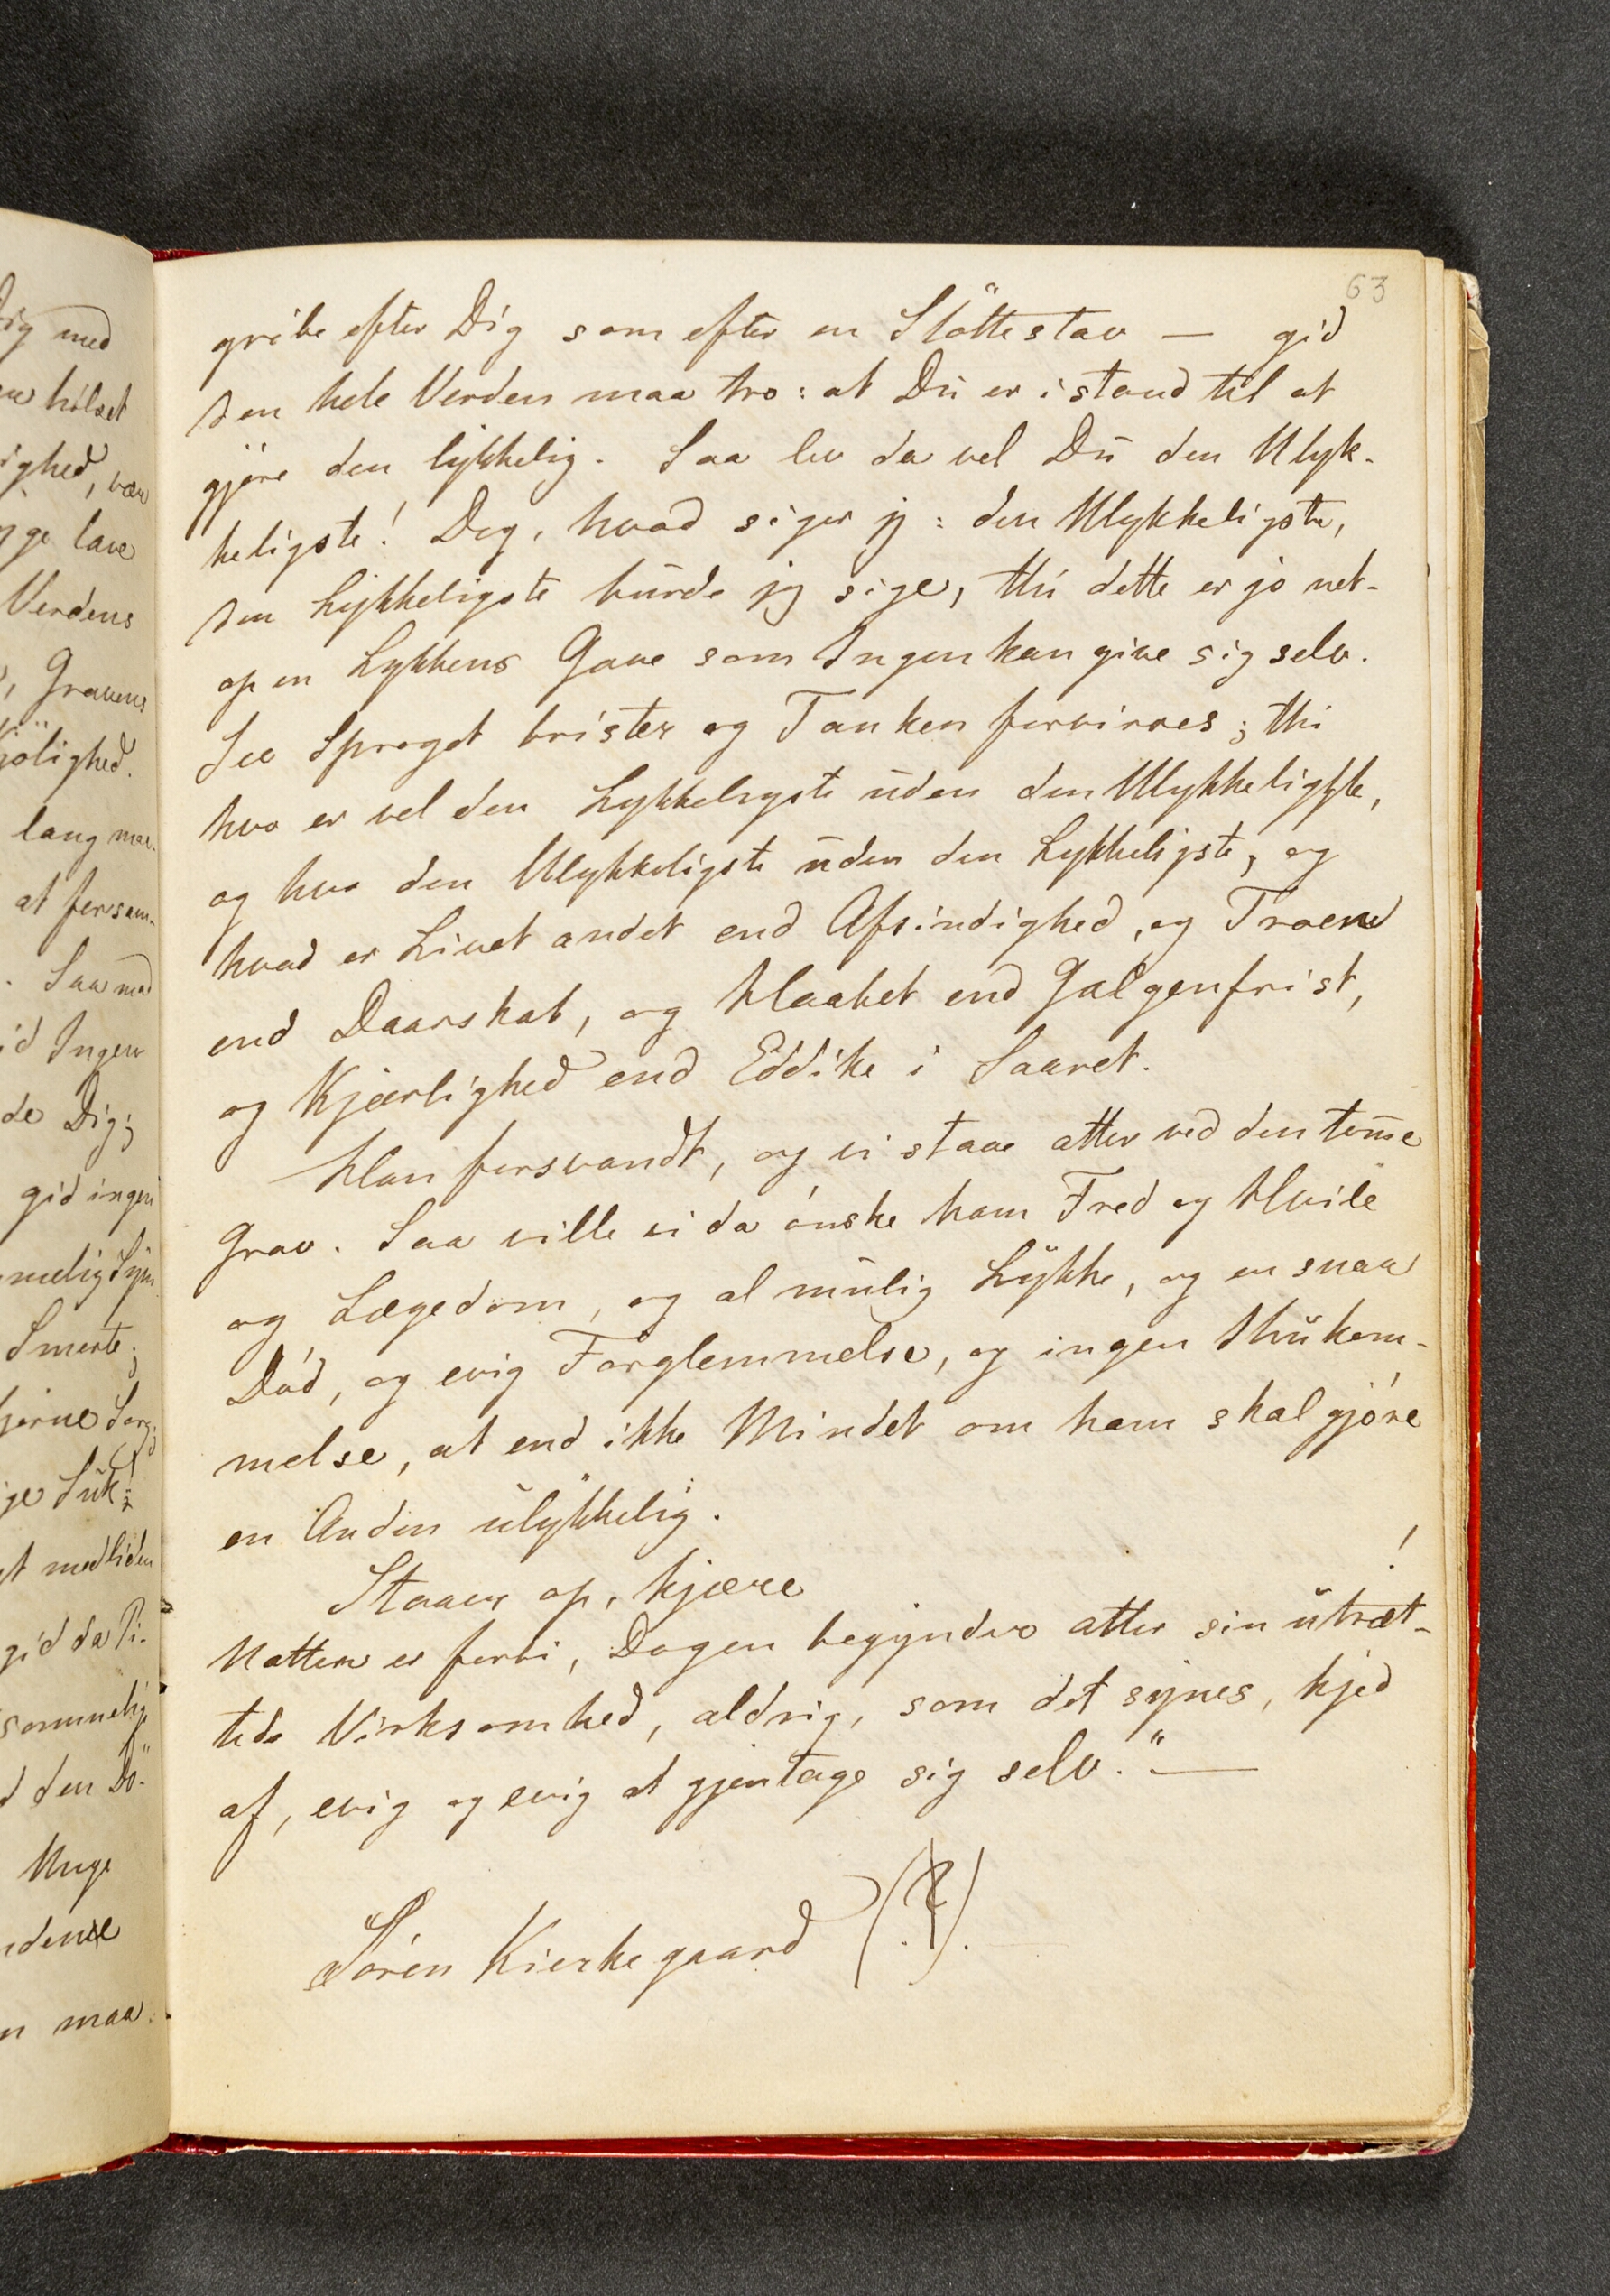 63
gribe efter Dig som efter en Støttestav — gid
den hele Verden maa tro: at Du er istand til at
gjøre den lykkelig. Saa lev da vel Du den Ulyk-
keligste! Dog, hvad siger jeg: den Ulykkeligste,
den Lykkeligste burde jeg sige, thi dette er jo net-
op en Lykkens Gave som Ingen kan give sig selv.
See Sproget brister og Tanken forvirres; thi
hvo er vel den Lykkeligste uden den Ulykkeligste,
og hvo den Ulykkeligste uden den Lykkeligste, og
hvad er Livet andet end Afsindighed, og Troen
end Daarskab, og Haabet end Galgenfrist,
og Kjærlighed end Eddike i Saaret.
Han forsvandt, og vi staae atter ved den tom̄e
Grav. Saa ville vi da ønske ham Fred og Hvile
og Lægedom, og al mulig Lykke, og en snar
Død, og evig Forglemmelse, og ingen Ihukom-
melse, at end ikke Mindet om ham skal gjøre
en Anden ulykkelig.
Staaer op, kjære !
Natten er forbi, Dagen begynder atter sin utræt-
tede Virksomhed, aldrig, som det synes, kjed
af, evig og evig at gjentage sig selv." —
Søren Kierkegaard (?).
Dig med
hilset
lave
Verdens
Gravens
lang
at forsam-
Saa
Ingen
Dig;
gid ingen
Smerte;
Suk;
gid da
den Dø-
Unge
maa